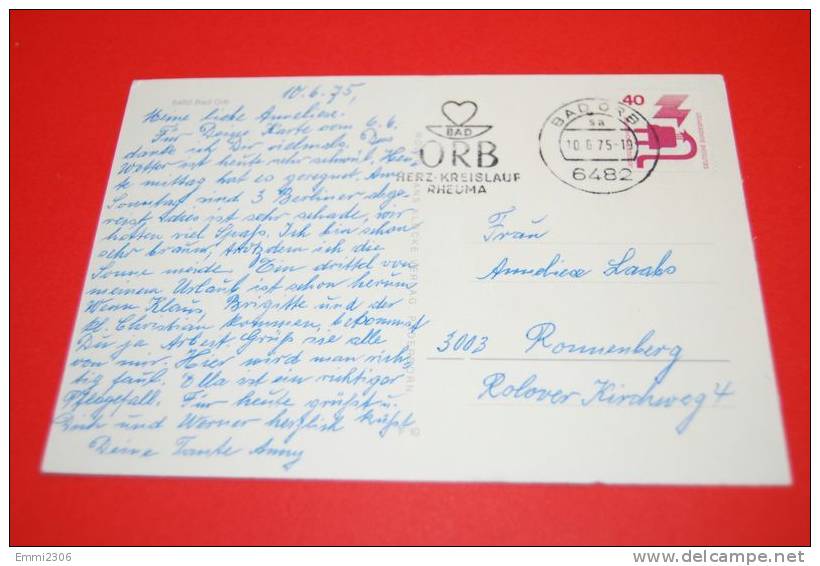 6482 Bad Orb
10.6.75,
Meine liebe Anneliese.
Für Deine Karte vom 6.6.
danke ich Dir vielmals. Das
Wetter ist heute sehr schwül, Heu
te mittag hat es geregnet. Am
Sonntag sind 3 Berliner abge
reist, dies ist sehr schade, wir
hatten viel Spaß. Ich bin schon
sehr braun, trotzdem ich die
Sonne meide. Ein drittel von
meinem Urlaub ist schon herum
Wenn Klaus, Brigitte und der
kl. Christian kommen, bekommst
Du ja Arbeit Grüß sie alle
von mir. Hier wird man rich
tig faul. Olla ist ein richtiger
Pflegefall. Für heute grüßt u.
Dich und Werner herzlich küßt
Deine Tante Anny
BAD
ORB
HERZ-KREISLAUF
RHEUMA
BAD ORB
sa
10.6.75-19
6482
40
DEUTSCHE BUNDESPOST
Frau
Anneliese Laabs
3003 Ronnenberg
Rolover Kirchweg 4
Emmi2306
delcampe.net